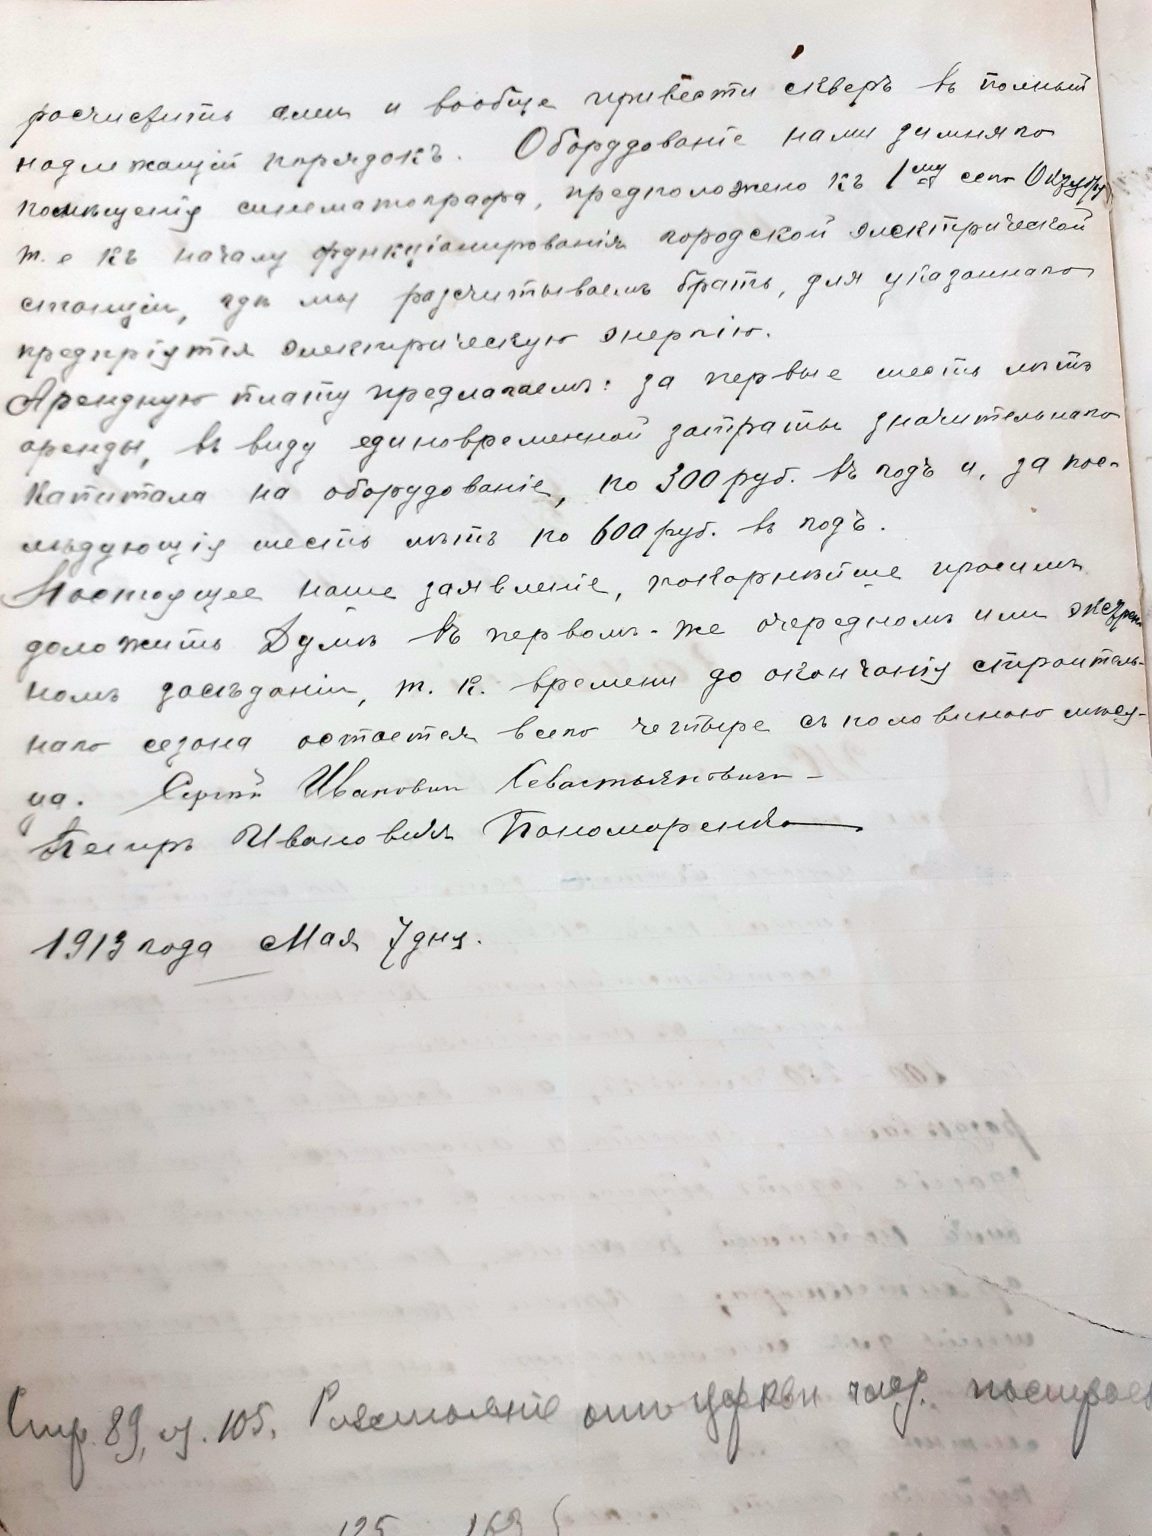 расчистить алеи и вообще привести скверъ въ полный
надлежащій порядокъ. Оборудованіе нами зимняго
помѣщенія синематографа, предположено къ 1му
т. е къ началу функціонированія городской электрической
станціи, гдѣ мы разсчитываемъ брать, для указаннаго
предпріятія электрическую энергію.
Арендную плату предлагаемъ: за первые шесть лѣтъ
аренды, въ виду единовременной затраты значительнаго
капитала на оборудованіе, по 300 руб. въ годъ и, за пос-
лѣдующія шесть лѣтъ по 600 руб. въ годъ.
Настоящее наше заявленіе, покорнѣйше просимъ
доложить Думѣ въ первомъ-же очередномъ или экстрен
номъ засѣданіи, т. к. времени до окончанія строитель-
наго сезона остается всего четыре съ половиною мѣся-
ца. Сергѣй Ивановичъ Севастьяновичъ
Петръ Ивановичъ Пономаренко
1913 года Мая 7 дня.
Стр. 89, 105. Разстояніе отъ церкви
125 163